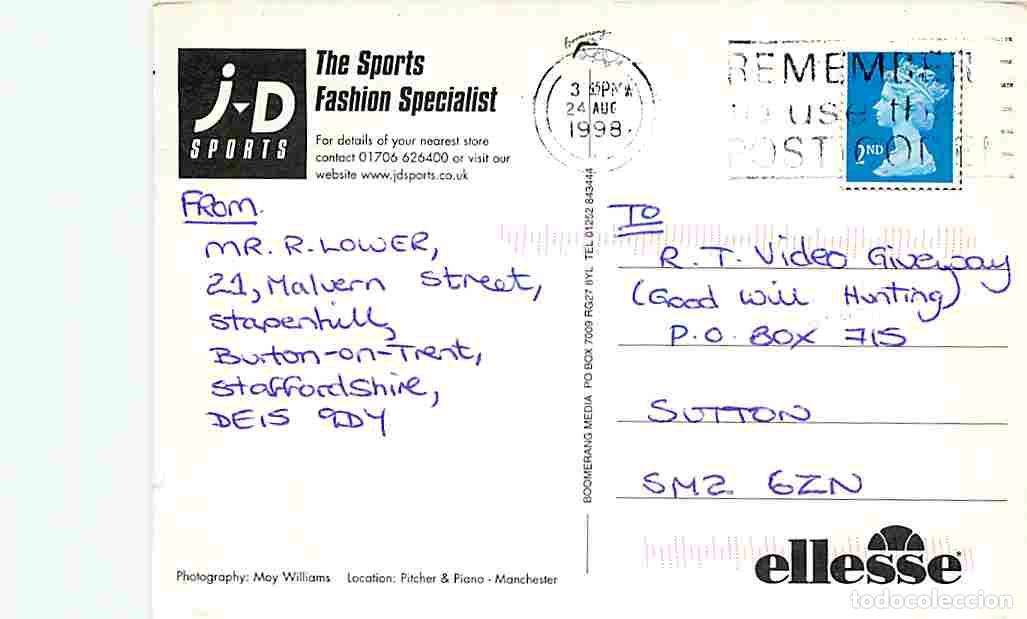 j-D
SPORTS
The Sports
Fashion Specialist
For details of your nearest store
contact 01706 626400 or visit our
website www.jdsports.co.uk
Boomerang
3 PM
24 AUG
1998
REMEMBER
to use the
POSTCODE
2ND
FROM.
MR. R. LOWER,
21, Malvern Street,
Stapenhill,
Burton-on-Trent,
Staffordshire,
DE15 9DY
BOOMERANG MEDIA PO BOX 7009 RG27 8YL TEL 01252 843444
TO
R. T. Video Giveway
(Good Will Hunting)
P.O. BOX 715
SUTTON
SM2 6ZN
ellesse
Photography: Moy Williams Location: Pitcher & Piano - Manchester
todocoleccion